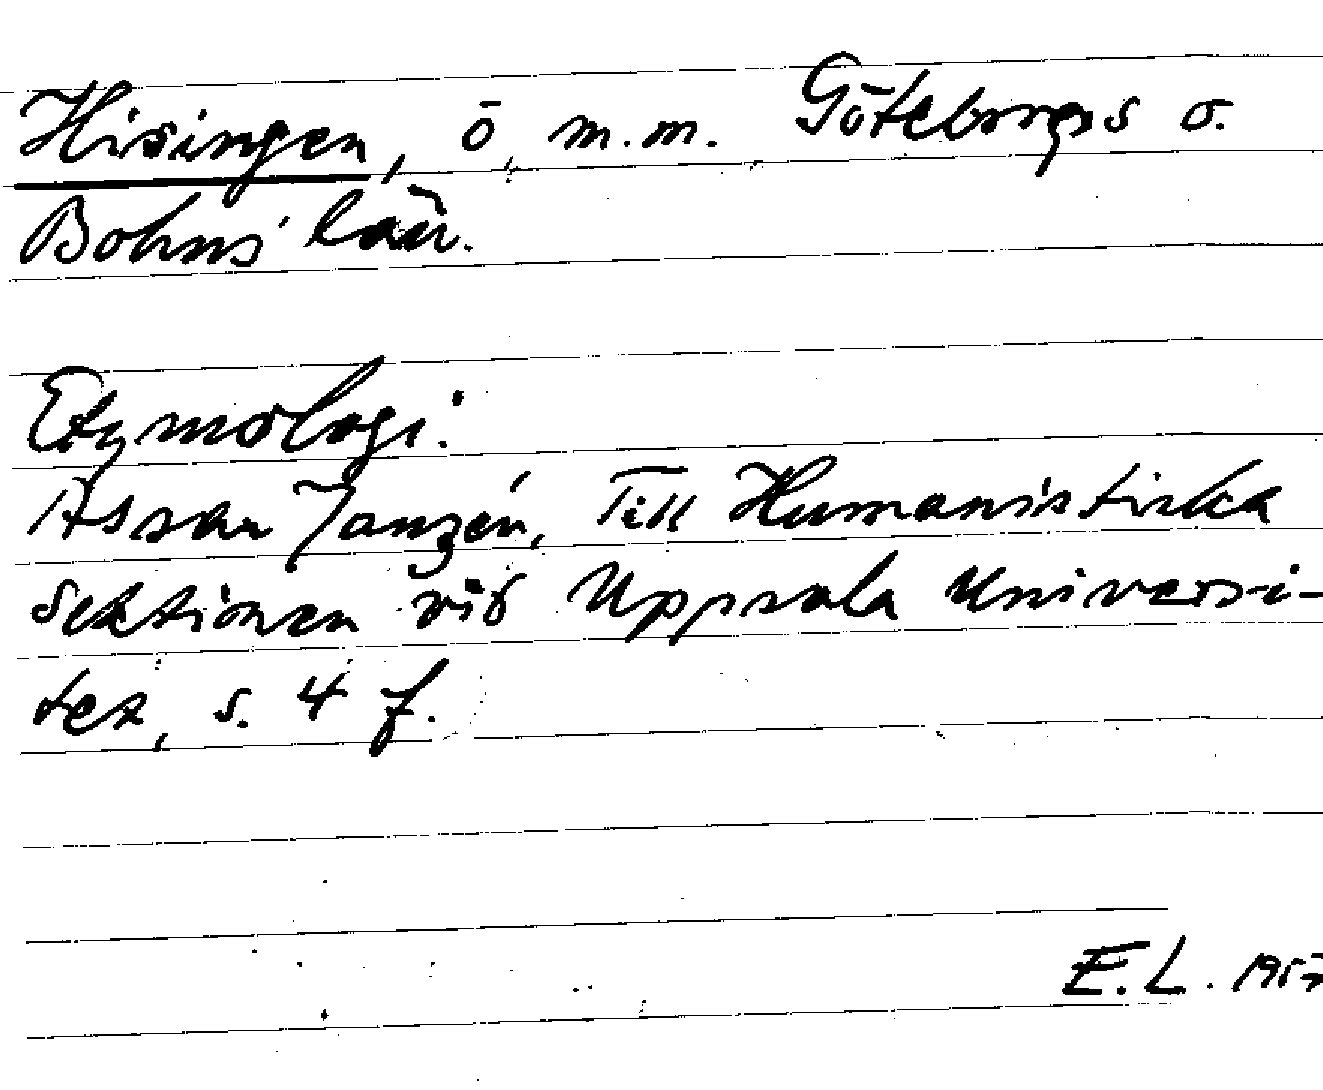 Hisingen, ö, m.m. Göteborgs o.
Bohus' län.
Etymologi:
Assar Janzén, Till Humanistiska
Sektionen vid Uppsala Universi-
tet, s. 4 f.
E.L. 1957